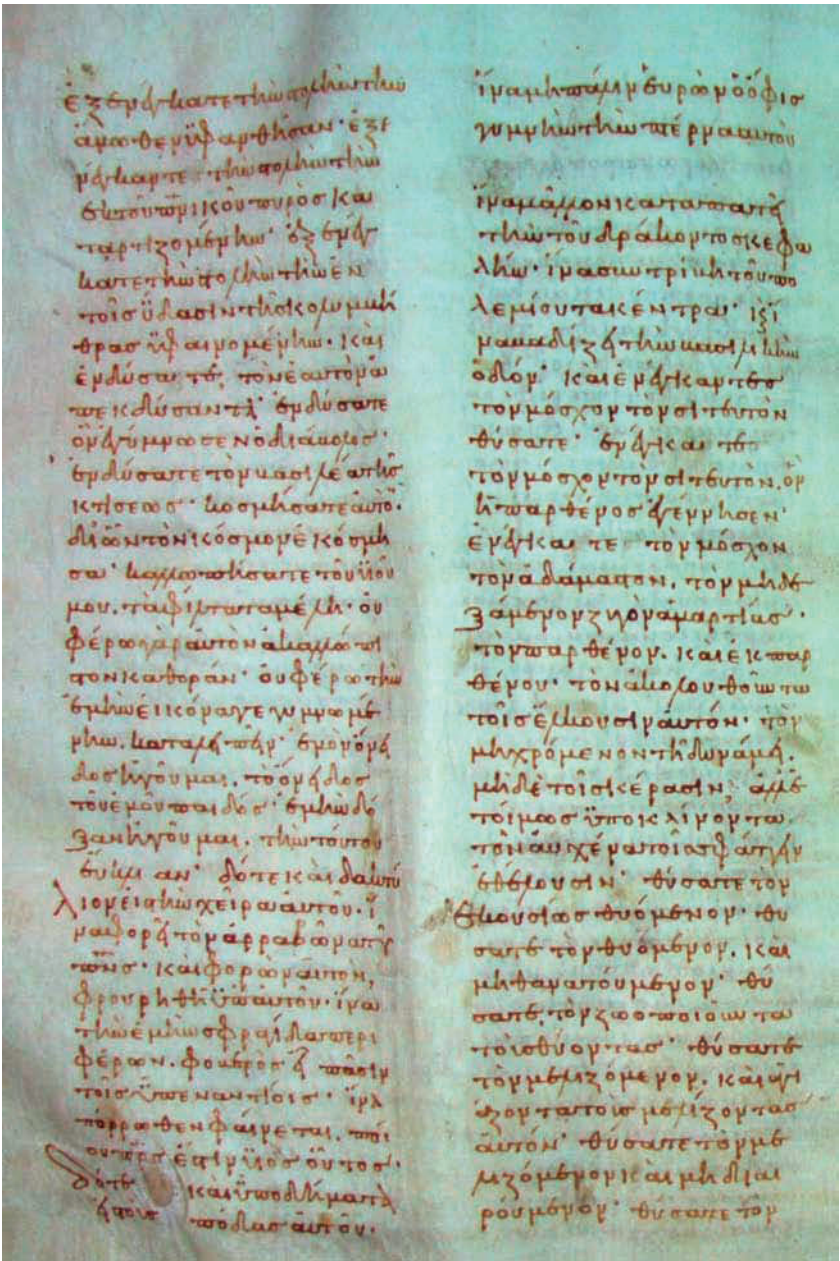 ἐξενέγκατε τὴν στολὴν τὴν
ἄνωθεν ὑφανθῆσαν· ἐξε
νέγκατε τὴν στολὴν τὴν
ἐκ τοῦ πνικοῦ πυρὸς κα
ταρτιζομένην· ἐξενέγ
κατε τὴν στολὴν τὴν ἐν
τοῖς ὕδασιν τῆς κολυμβή
θρας ὑφαινομένην· καὶ
ἐνδύσατε, τὸν ἑαυτὸν ἀ
πεκδύσαντα· ἐνδύσατε
ὃν ἐγύμνωσεν ὁ διάβολος·
ἐνδύσατε τὸν βασιλέα τῆς
κτίσεως· κοσμήσατε αὐτὸ·
δι' ὃν τὸν κόσμον ἐκόσμη
σα· καλλωπήσατε τοῦ υἱοῦ
μου, τὰ φίλτατα μέλη· οὐ
φέρω γὰρ αὐτὸν ἀκαλλώπι
στον καθορᾶν· οὐ φέρω τὴν
ἐμὴν εἰκόνα γεγυμνωμέ
νην, καταλειπεῖν· ἐμὸν ὄνει
δος ἡγοῦμαι, τὸ ὄνειδος
τοῦ ἐμοῦ παιδός· ἐμὴν δό
ξαν ἡγοῦμαι, τὴν τούτου
εὔκλιαν· δότε καὶ δακτύ
λιον εἰς τὴν χεῖρα αὐτοῦ· ἵ
να φορεῖ τὸν ἀρραβῶνα τοῦ
πνς· καὶ φορῶν αὐτὸν,
φρουρηθῇ ὑπ' αὐτοῦ· ἵνα
τὴν ἐμὴν σφραγίδα περι
φέρων, φοβερὸς εἶ πᾶσιν
τοῖς ὑπεναντίοις· ἵνα
πόρρωθεν φαίνεται, ποί
ου πρς ἐστιν υἱὸς οὗτος·
δότε καὶ ὑποδήματα
εἰς τοὺς πόδας αὐτοῦ.
ἵνα μὴ πάλιν εὑρὼν ὁ ὄφις
γυμνὴν τὴν πτέρναν αὐτοῦ
ἵνα μᾶλλον καταπατεῖ
τὴν τοῦ δράκοντος κεφα
λήν· ἵνα συντρίψη τοῦ πο
λεμίου τὰ κέντρα· ἵ
να βαδίζει τὴν βασιλικὴν
ὁδόν· καὶ ἐνέγκαντες
τὸν μόσχον τὸν σιτευτὸν
θύσατε· ἐνέγκαντες
τὸν μόσχον τὸν σιτευτὸν, ὃν
ἡ παρθένος ἐγέννησεν·
ἐνέγκατε τὸν μόσχον
τὸν ἀδάμαστον, τὸν μὴ δε
ξάμενον ζυγὸν ἁμαρτίας·
τὸν παρθένον, καὶ ἐκ παρ
θένου· τὸν ἀκολουθοῦντα
τοῖς ἕλκουσιν αὐτόν· τὸν
μὴ χρόμενον τῇ δυνάμει,
μηδὲ τοῖς κέρασιν, ἀλλ' ἑ
τοίμως ὑποκλίνοντα
τὸν αὐχένα τοῖς σφάττειν
ἐθέλουσιν· θύσατε τὸν
ἑκουσίως θυόμενον· θύ
σατε τὸν θυόμενον, καὶ
μὴ θανατούμενον· θύ
σατε, τὸν ζωοποιοῦντα
τοὺς θύοντας· θύσατε
τὸν μελιζόμενον, καὶ ἁγι
άζοντα τοὺς μελίζοντας
αὐτόν· θύσατε τὸν με
λιζόμενον καὶ μὴ διαι
ρούμενον· θύσατε τὸν